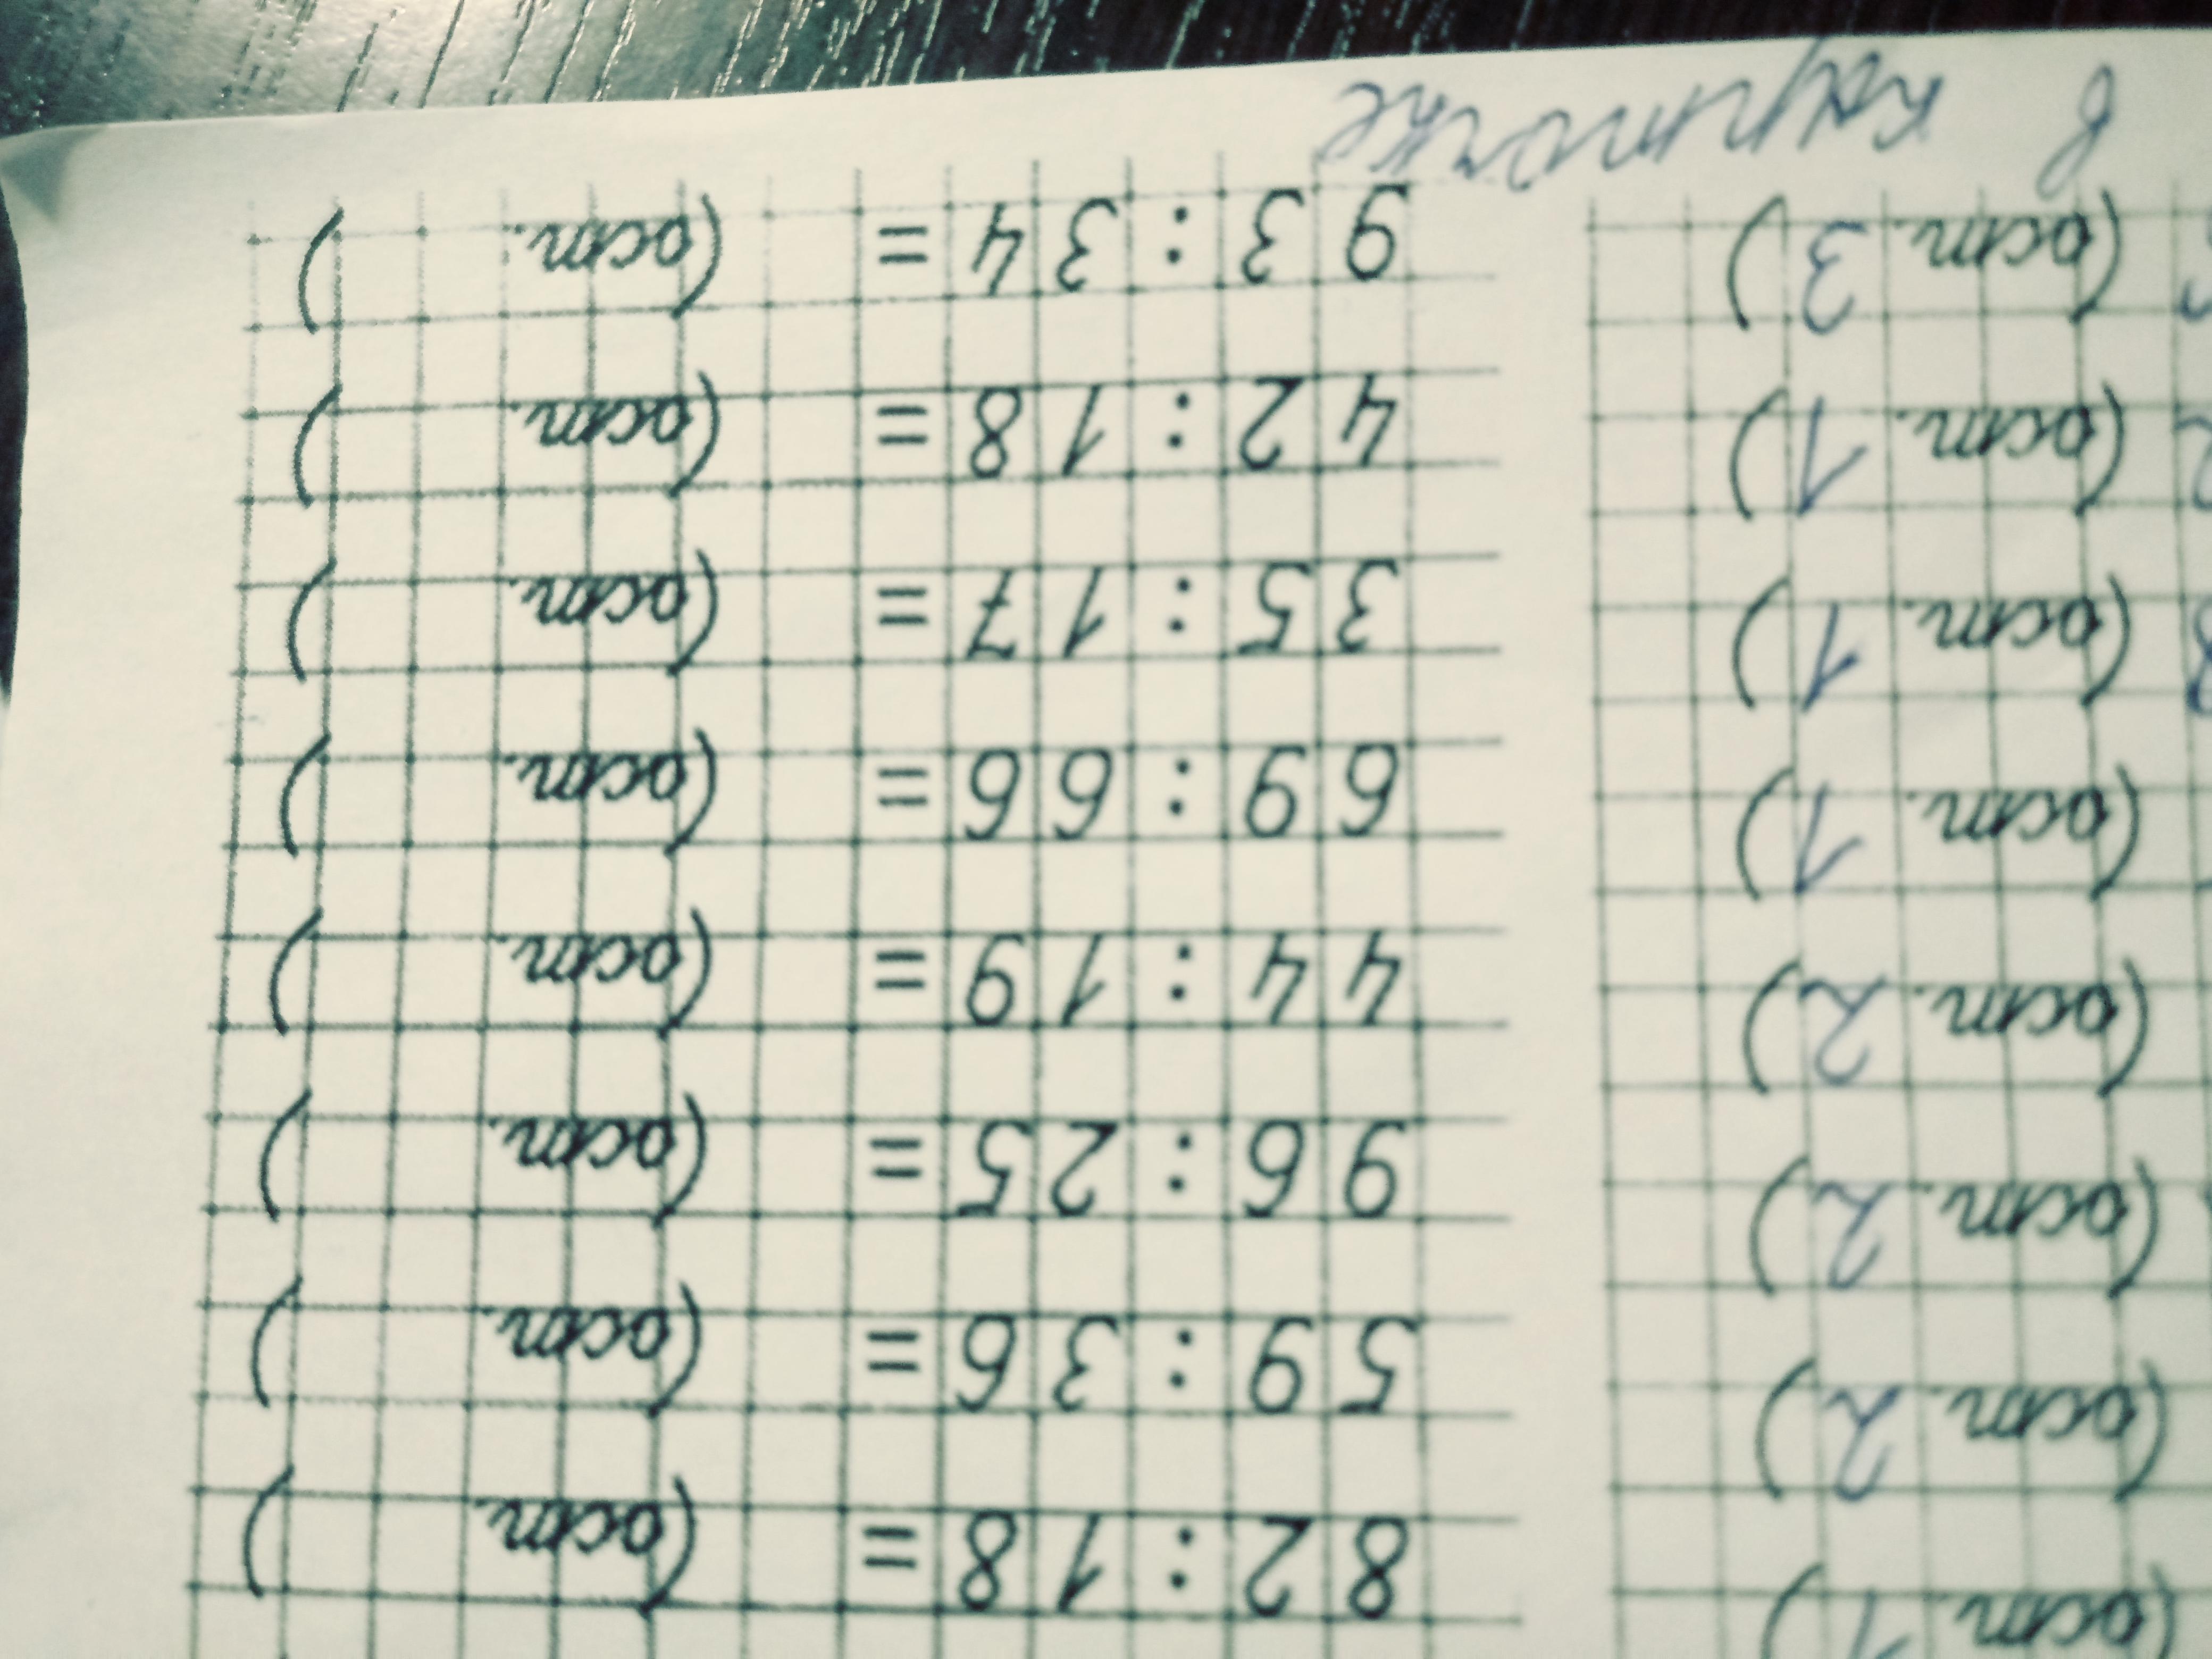 (ост. 1) 82:18= (ост. )
(ост. 2) 59:36= (ост. )
(ост. 2) 96:25= (ост. )
(ост. 2) 44:19= (ост. )
(ост. 1) 69:66= (ост. )
(ост. 1) 35:17= (ост. )
(ост. 1) 42:18= (ост. )
(ост. 3) 93:34= (ост. )
в карточке